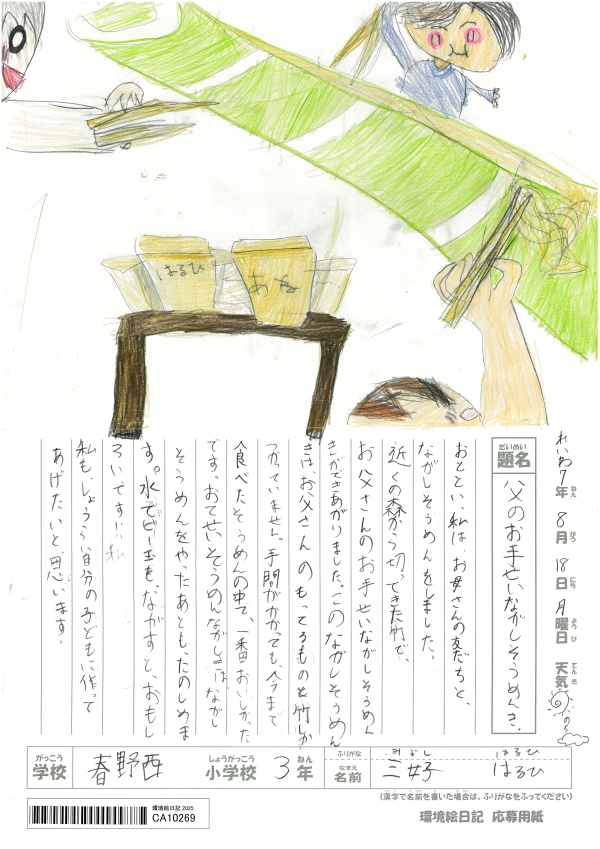 はるひ
あね
れいわ7年 8月 18日 月曜日 天気 のち
ねん がつ にち ようび てんき
だいめい
題名 父のお手せいながしそうめんき。
おととい、私は、お母さんの友だちと、
ながしそうめんをしました。
近くの森から切ってきた竹で、
お父さんのお手せいながしそうめん
きができあがりました。このながしそうめん
きは、お父さんのもってるものと竹しか
つかっていません。手間がかかっても、今まで
食べたそうめんの中で、一番おいしかった
です。おてせいそうめんながしきは、ながし
そうめんをやったあとも、たのしめま
す。水でビー玉を、ながすと、おもし
ろいです!!
私も、しょうらい自分の子どもに作って
あげたいと、思います。
がっこう
学校 春野西
しょうがっこう
小学校 3年
ねん
ふりがな みよし はるひ
なまえ
名前 三好 はるひ
(漢字で名前を書いた場合は、ふりがなをふってください)
環境絵日記 2025
CA10269
環境絵日記 応募用紙